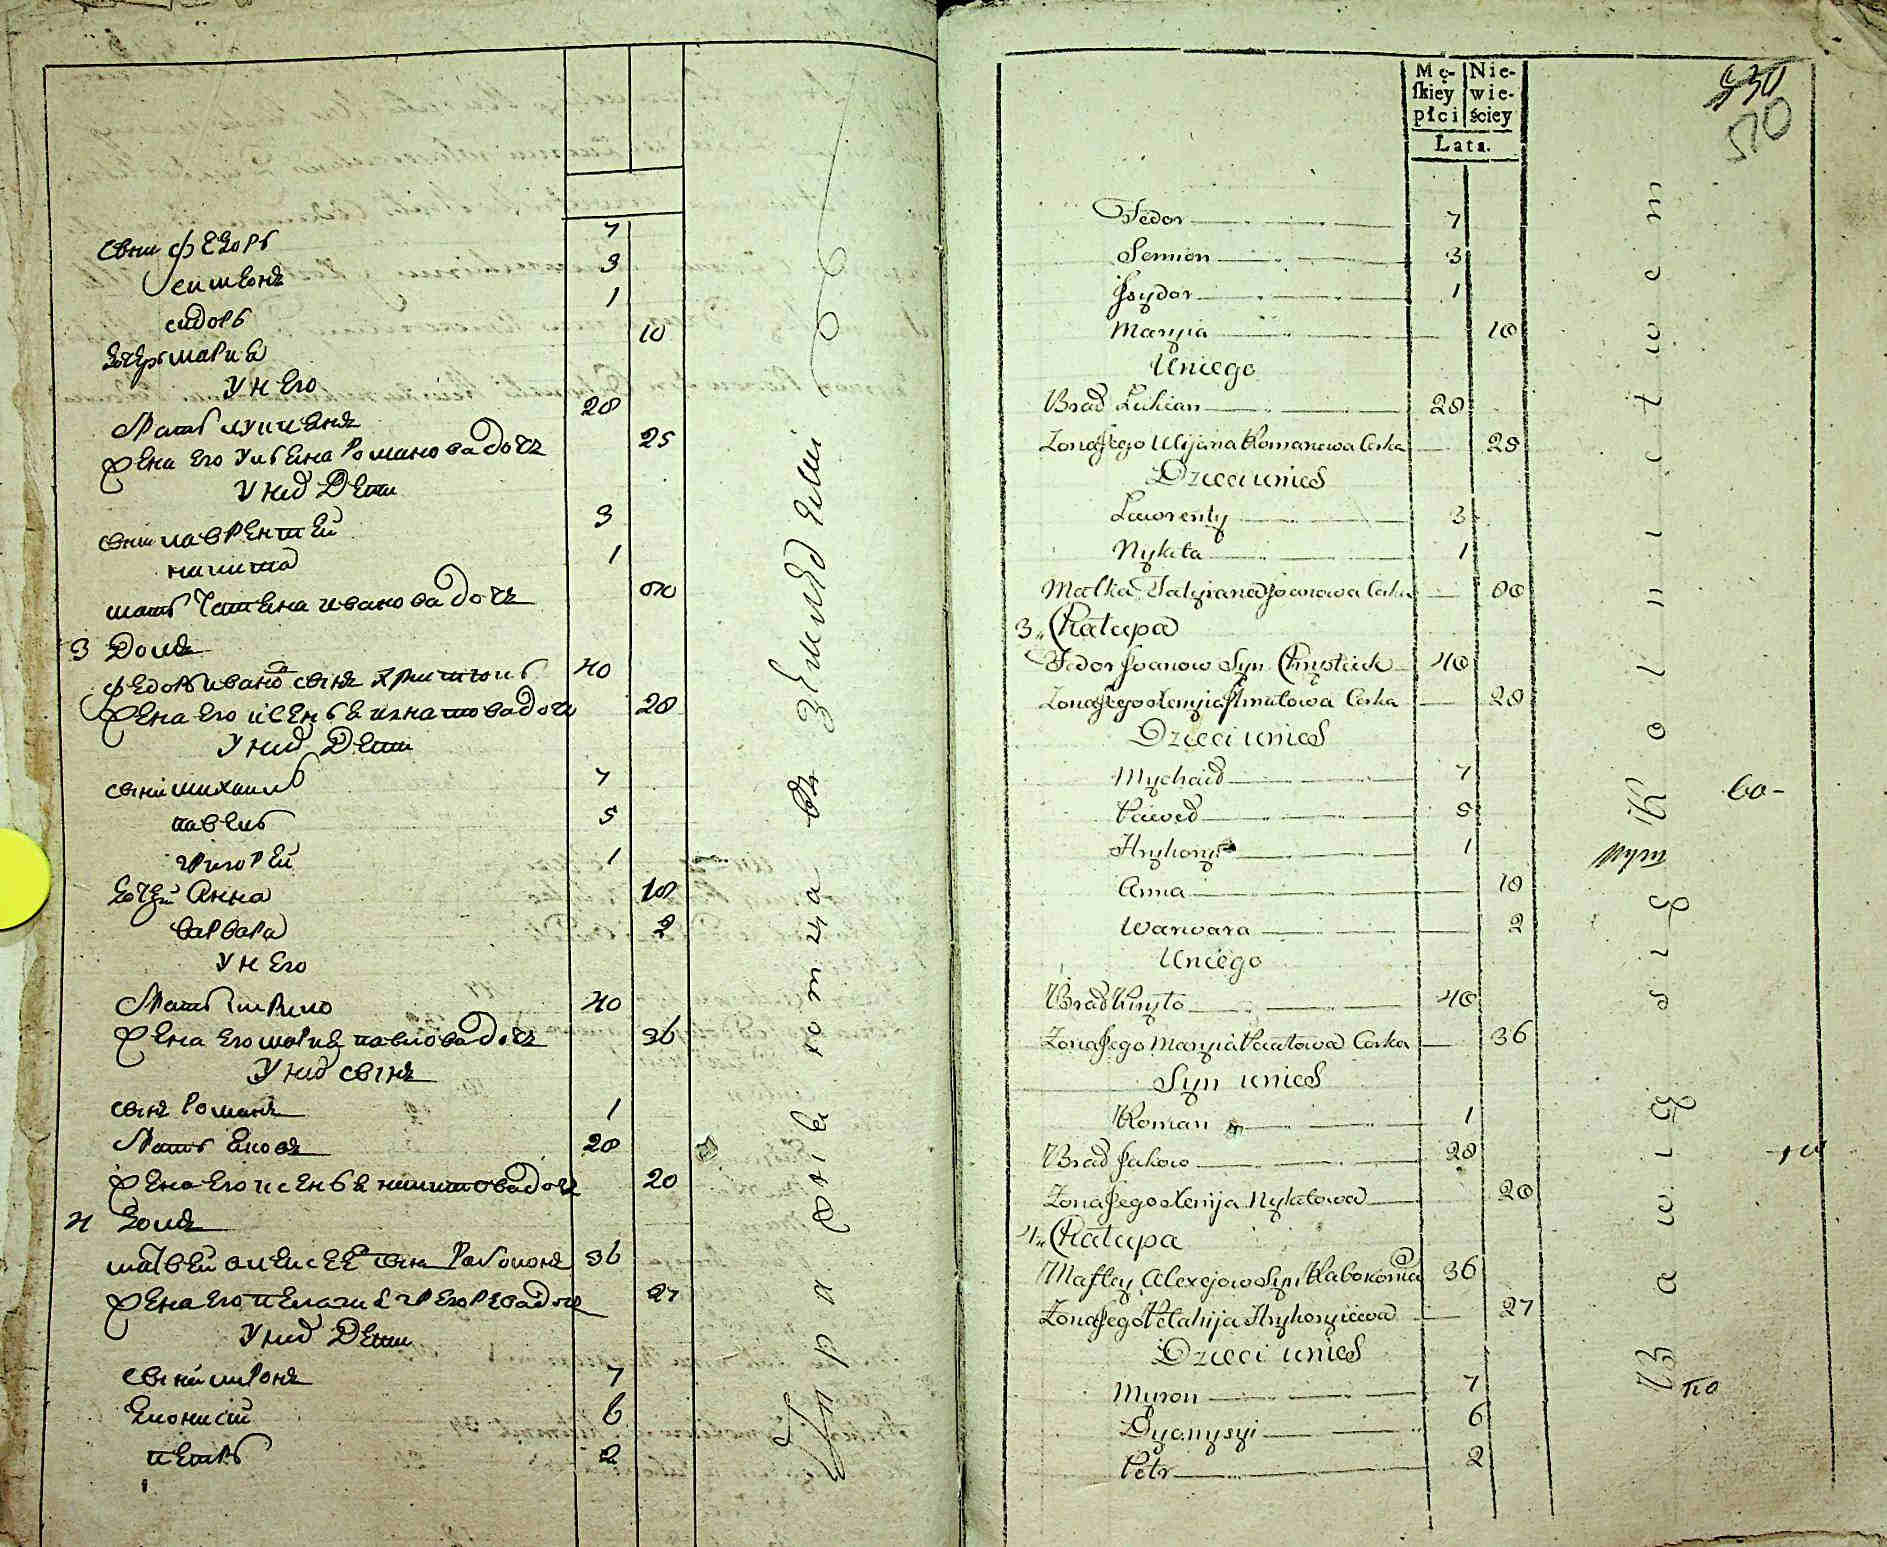 Сыни Федоръ 7
Симеонъ 3
сидоръ 1
дочерь мариа 10
у него
братъ лукианъ 28
жена его улиена романова дочъ 25
у нихъ дети
сыни лаврентей 3
никита 1
мать татиена иванова дочъ
3 домъ
федоръ ивановъ сынъ 40
жена его ксенья игнатова дочъ 28
у нихъ дети
сыни михаилъ 7
павелъ 5
григорей 1
дочери Анна 10
варвара 2
у него
братъ кирило 40
жена его мариа павлова дочъ 36
у нихъ сынъ
сынъ романъ 1
братъ яковъ 28
жена его ксенья никитова дочъ 20
4 домъ
матвей алексеевъ сынъ 36
жена его пелагиа григорева дочъ 27
у нихъ дети
сыни миронъ 7
дионисий 6
петръ 2
Mę- Nie-
ſkiey wie-
płci ściey
Lata.
430
510
Fedor 7
Semion 3
Jsydor 1
Maryia 10
Uniego
Brad Łukian 28
Zona Jego Uljana Romanowa Corka 25
Dzieci unich
Lawrenty 3
Nykita 1
Matka Tatyiana Jwanowa Corka 60
3. Chałupa
Fedor Jwanow Syn 40
Zona Jego Xenyia Corka 28
Dzieci unich
Mychaił 7
Paweł 5
Hryhory 1
Anna 10
Warwara 2
Uniego
Brad Kiryło 40
Zona Jego Maryia Pawłowa Corka 36
Syn unich
Roman 1
Brad Jakow 28
Zona Jego Xenija Nykitowa 20
4. Chałupa
Matfey Alexejow Syn 36
Zona Jego Pelahija Hryhoryiewa 27
Dzieci unich
Myron 7
Dyonysyi 6
Petr 2
Bawią się Rolnictwem